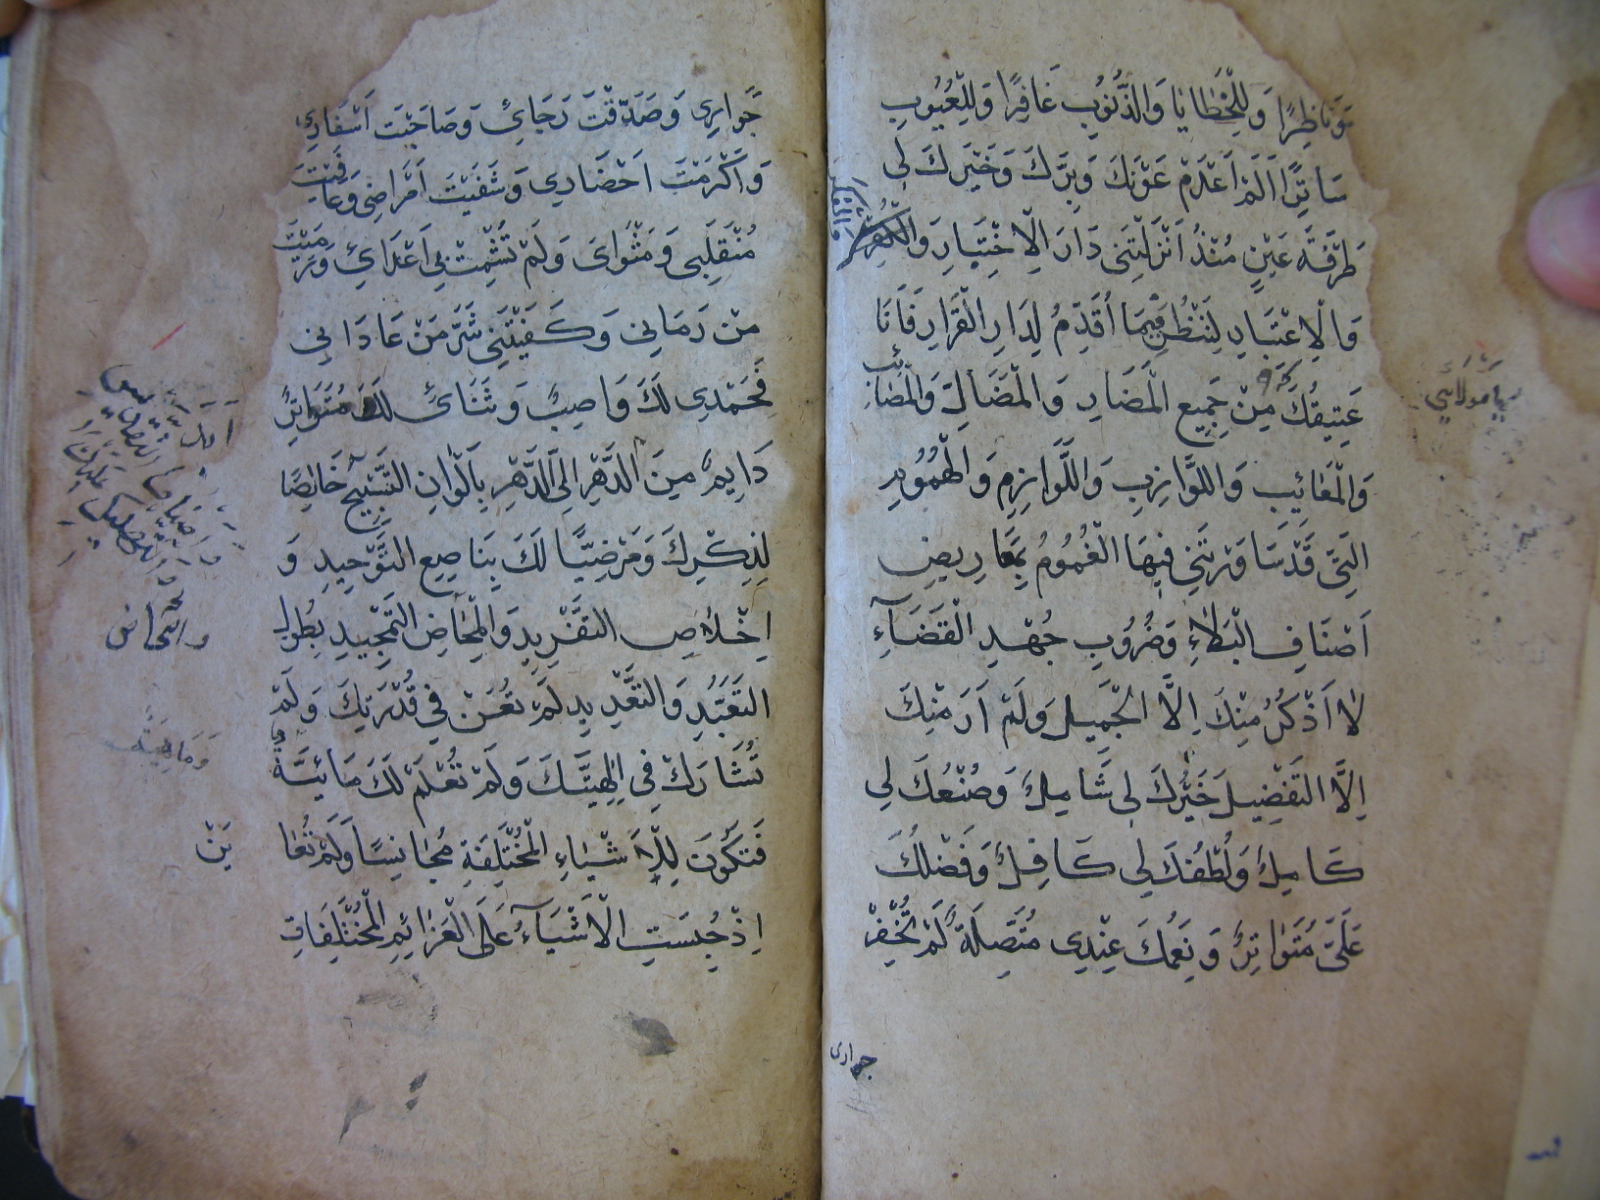 وَنَاظِرًا وَلِلْخَطَايَا وَالذُّنُوبِ غَافِرًا وَلِلْعُيُوبِ
سَاتِرًا لَمْ اَعْدَمْ عَوْنَكَ وَبِرَّكَ وَخَيْرَكَ لِي
طَرْفَةَ عَيْنٍ مُنْذُ اَنْزَلْتَنِي دَارَ الْاِخْتِيَارِ وَالْفِكْرِ
وَالْاِعْتِبَارِ لِتَنْظُرَ فِيمَا اُقَدِّمُ لِدَارِ الْقَرَارِ فَاَنَا
عَتِيقُكَ مِنْ جَمِيعِ الْمَضَارِ وَالْمَضَالِّ وَالْمَصَائِبِ
يَا مَوْلَائِي
وَالْمَعَائِبِ وَاللَّوَازِبِ وَاللَّوَازِمِ وَالْهُمُومِ
الَّتِي قَدْ سَاوَرَتْنِي فِيهَا الْغُمُومُ بِمَعَارِيضِ
اَصْنَافِ الْبَلَاءِ وَضُرُوبِ جُهْدِ الْقَضَآءِ
لَا اَذْكُرُ مِنْكَ اِلَّا الْجَمِيلَ وَلَمْ اَرَ مِنْكَ
اِلَّا التَّفْضِيلَ خَيْرُكَ لِي شَامِلٌ وَصُنْعُكَ لِي
كَامِلٌ وَلُطْفُكَ لِي كَافِلٌ وَفَضْلُكَ
عَلَيَّ مُتَوَاتِرٌ وَنِعَمُكَ عِنْدِي مُتَّصِلَةٌ لَمْ تُخْفِرْ
جوارى
جِوَارِي وَصَدَّقْتَ رَجَائِي وَصَاحَبْتَ اَسْفَارِي
وَاَكْرَمْتَ اَحْضَارِي وَشَفَيْتَ اَمْرَاضِي وَعَافَيْتَ
مُنْقَلَبِي وَمَثْوَايَ وَلَمْ تُشْمِتْ بِي اَعْدَائِي وَرَمَيْتَ
مَنْ رَمَانِي وَكَفَيْتَنِي شَرَّ مَنْ عَادَانِي
فَحَمْدِي لَكَ وَاصِبٌ وَثَنَائِي لَكَ مُتَوَاتِرٌ
دَايِمٌ مِنَ الدَّهْرِ اِلَى الدَّهْرِ بِاَلْوَانِ التَّسْبِيحِ خَالِصًا
لِذِكْرِكَ وَمَرْضِيًّا لَكَ بِنَاصِعِ التَّوْحِيدِ وَ
اِخْلَاصِ التَّفْرِيدِ وَاِمْحَاضِ التَّمْجِيدِ بِطُولِ
التَّعَبُّدِ وَالتَّعْدِيدِ لَمْ تُعَنْ فِي قُدْرَتِكَ وَلَمْ
تُشَارَكْ فِي اِلٰهِيَّتِكَ وَلَمْ تُعْلَمْ لَكَ مَائِيَّةٌ
وَمَاهِيَّةٌ
فَتَكُونَ لِلْاَشْيَاءِ الْمُخْتَلِفَةِ مُجَانِسًا وَلَمْ تُعَا
يَنْ
اِذْ حُبِسَتِ الْاَشْيَآءُ عَلَى الْعَزَائِمِ الْمُخْتَلِفَاتِ